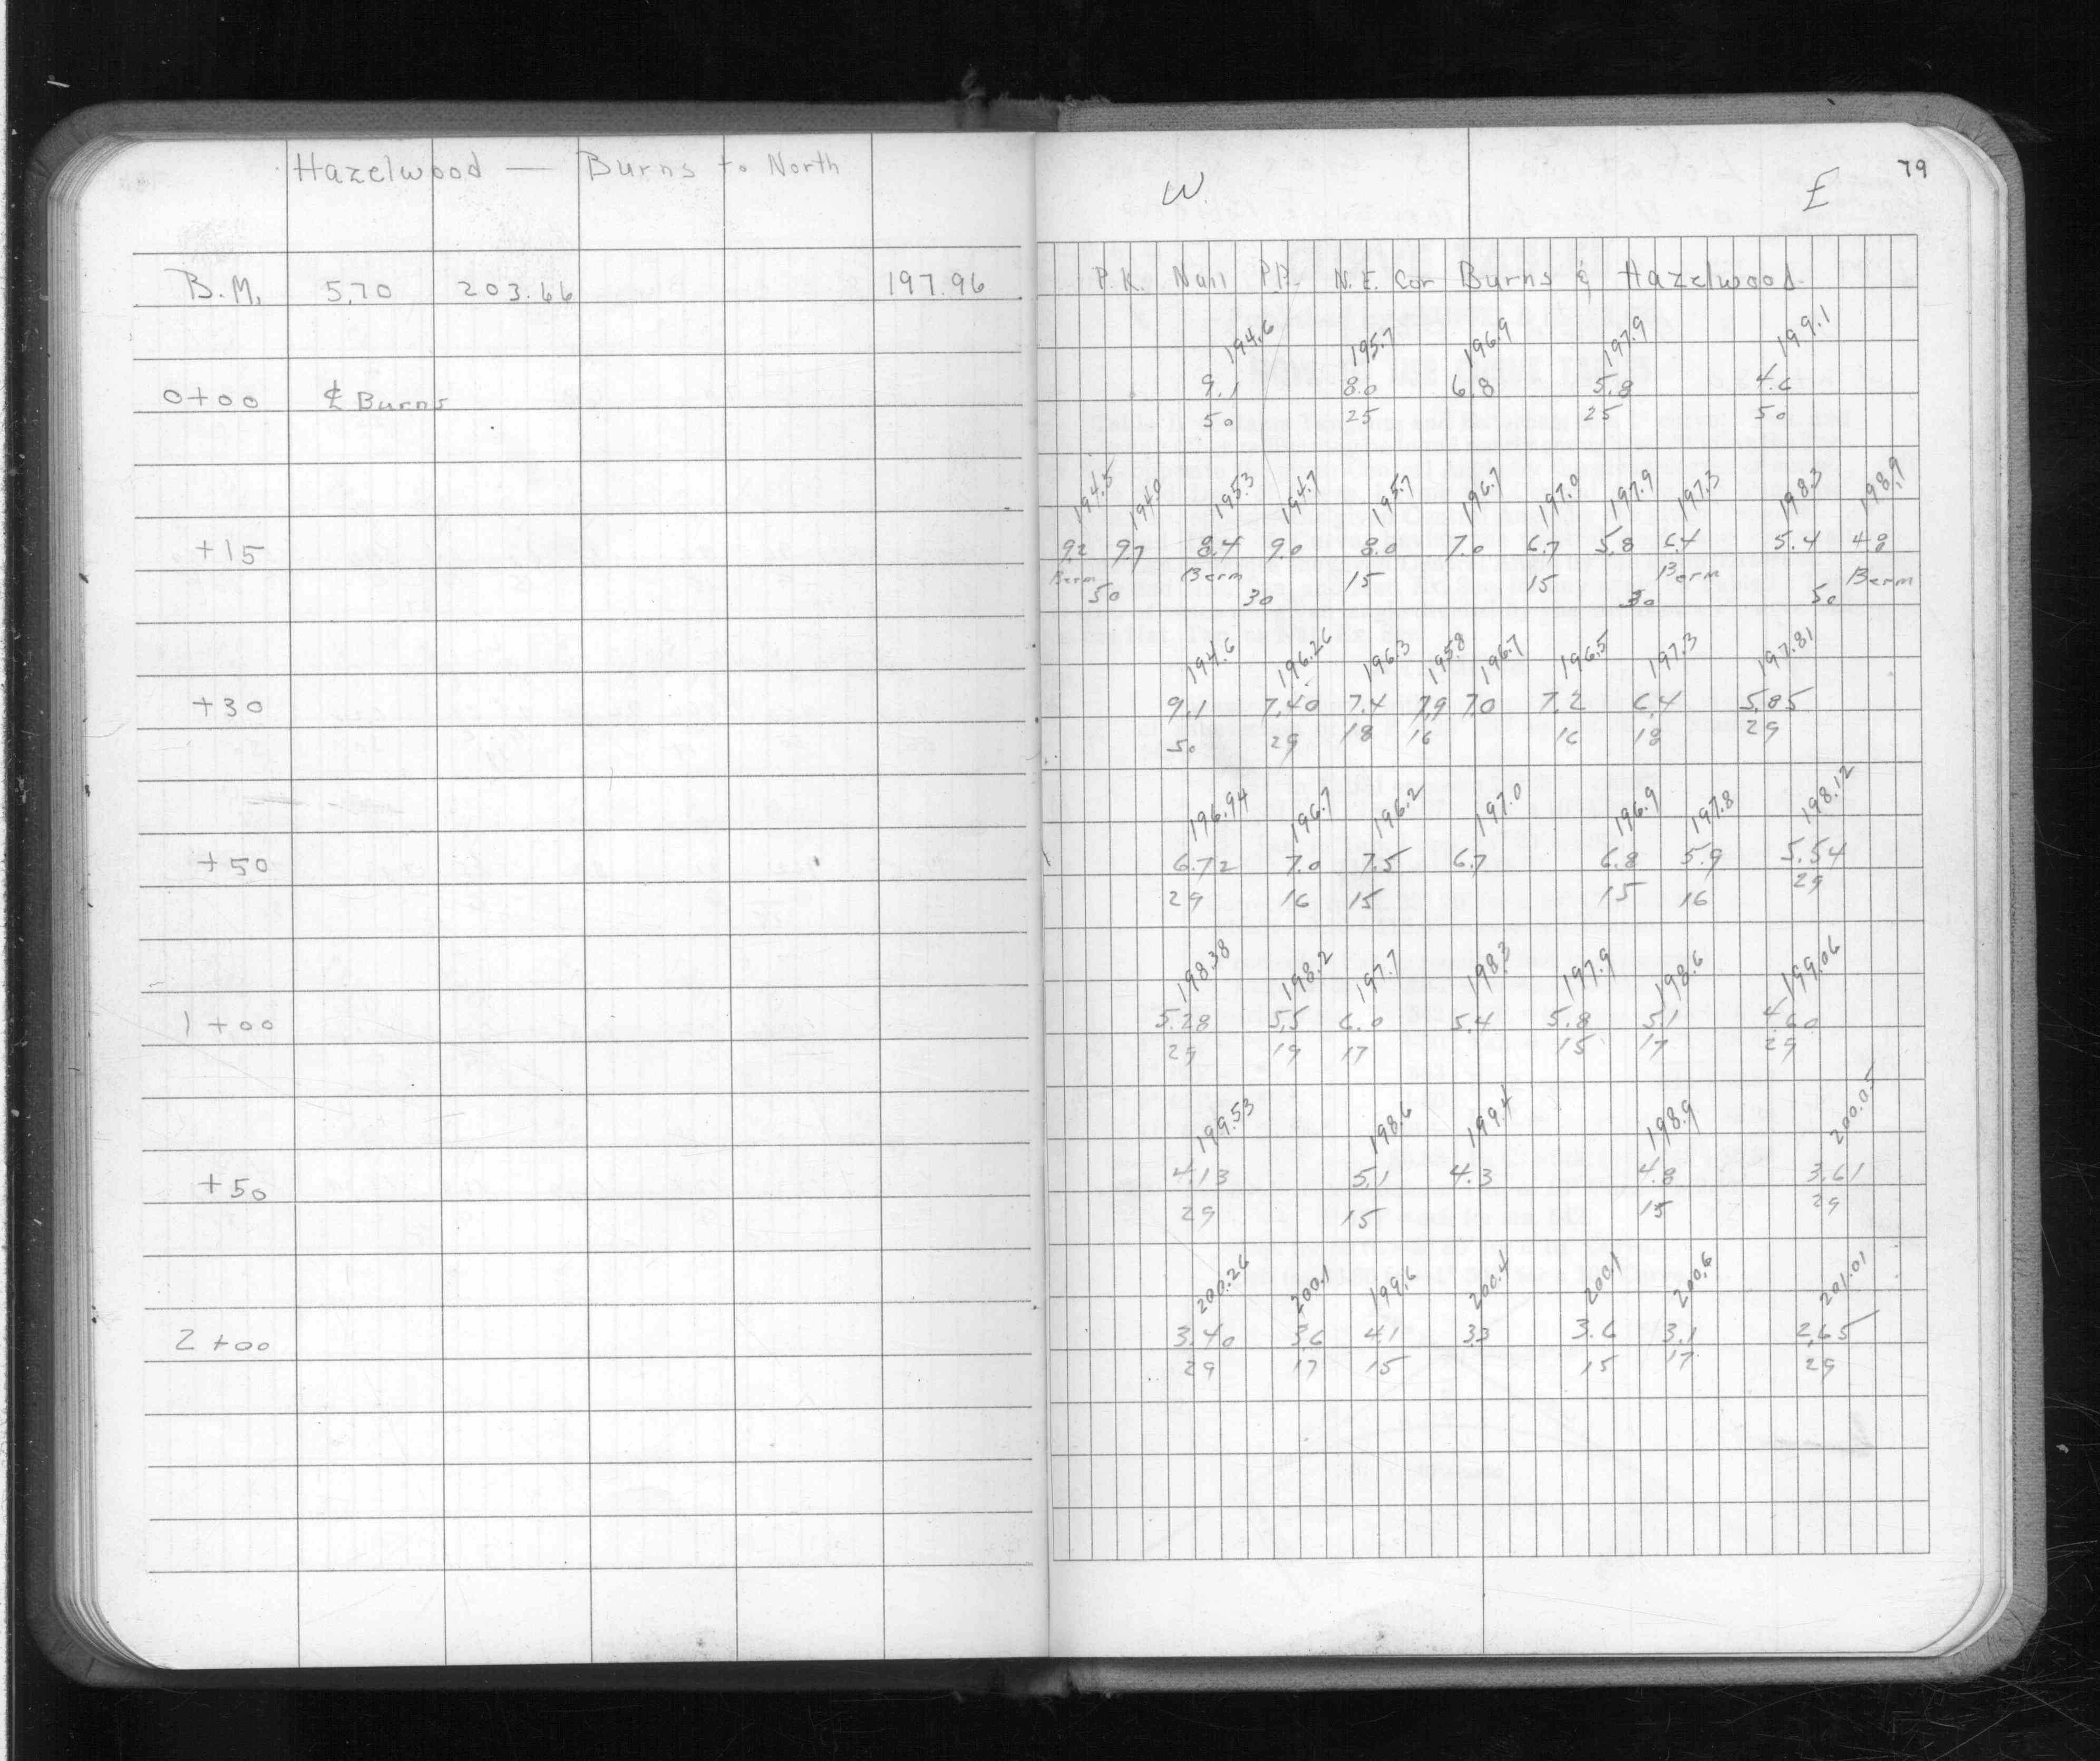 Hazelwood — Burns to North
79
W. E
B.M. 5.70 203.66 197.96 P.K. Nail P.P. N.E. Cor Burns & Hazelwood.
194.6 195.7 196.9 197.9 199.1
0+00 ℄ Burns 9.1 8.0 6.8 5.8 4.6
50 25 25 50
194.5 194.0 195.3 194.7 195.7 196.7 197.0 197.9 197.3 198.3 198.9
+15 9.2 9.7 8.4 9.0 8.0 7.0 6.7 5.8 6.4 5.4 4.8
Berm Berm 15 15 Berm Berm
50 30 30 50
194.6 196.26 196.3 195.8 196.7 196.5 197.3 197.81
+30 9.1 7.40 7.4 7.9 7.0 7.2 6.4 5.85
50 29 18 16 16 18 29
196.94 196.7 196.2 197.0 196.9 197.8 198.12
+50 6.72 7.0 7.5 6.7 6.8 5.9 5.54
29 16 15 15 16 29
198.38 198.2 197.7 198.3 197.9 198.6 199.06
1+00 5.28 5.5 6.0 5.4 5.8 5.1 4.60
29 19 17 15 17 29
199.53 198.6 199.4 198.9 200.05
+50 4.13 5.1 4.3 4.8 3.61
29 15 15 29
200.26 200.1 199.6 200.4 200.1 200.6 201.01
2+00 3.40 3.6 4.1 3.3 3.6 3.1 2.65
29 17 15 15 17 29